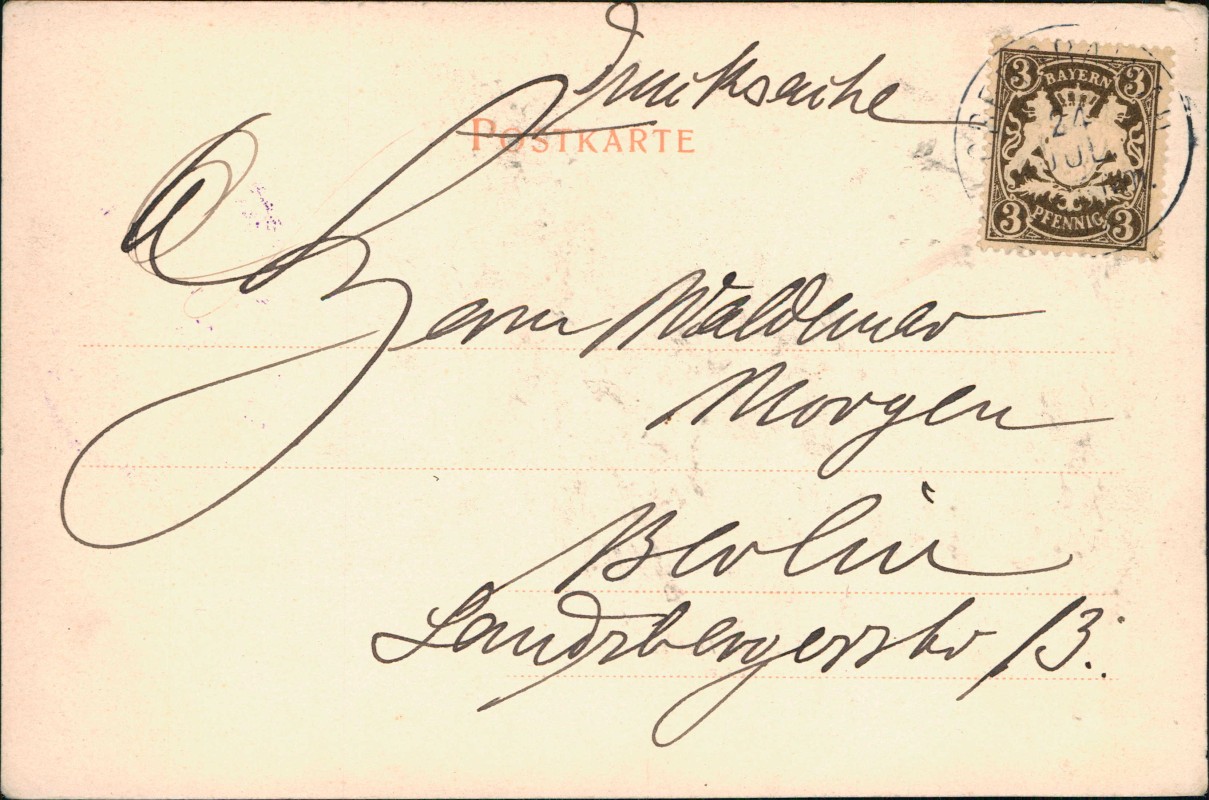 Drucksache
POSTKARTE
3 BAYERN 3
3 PFENNIG 3
24
JUL
Herrn Waldemar
Morgen
Berlin
Landsbergerstr 13.